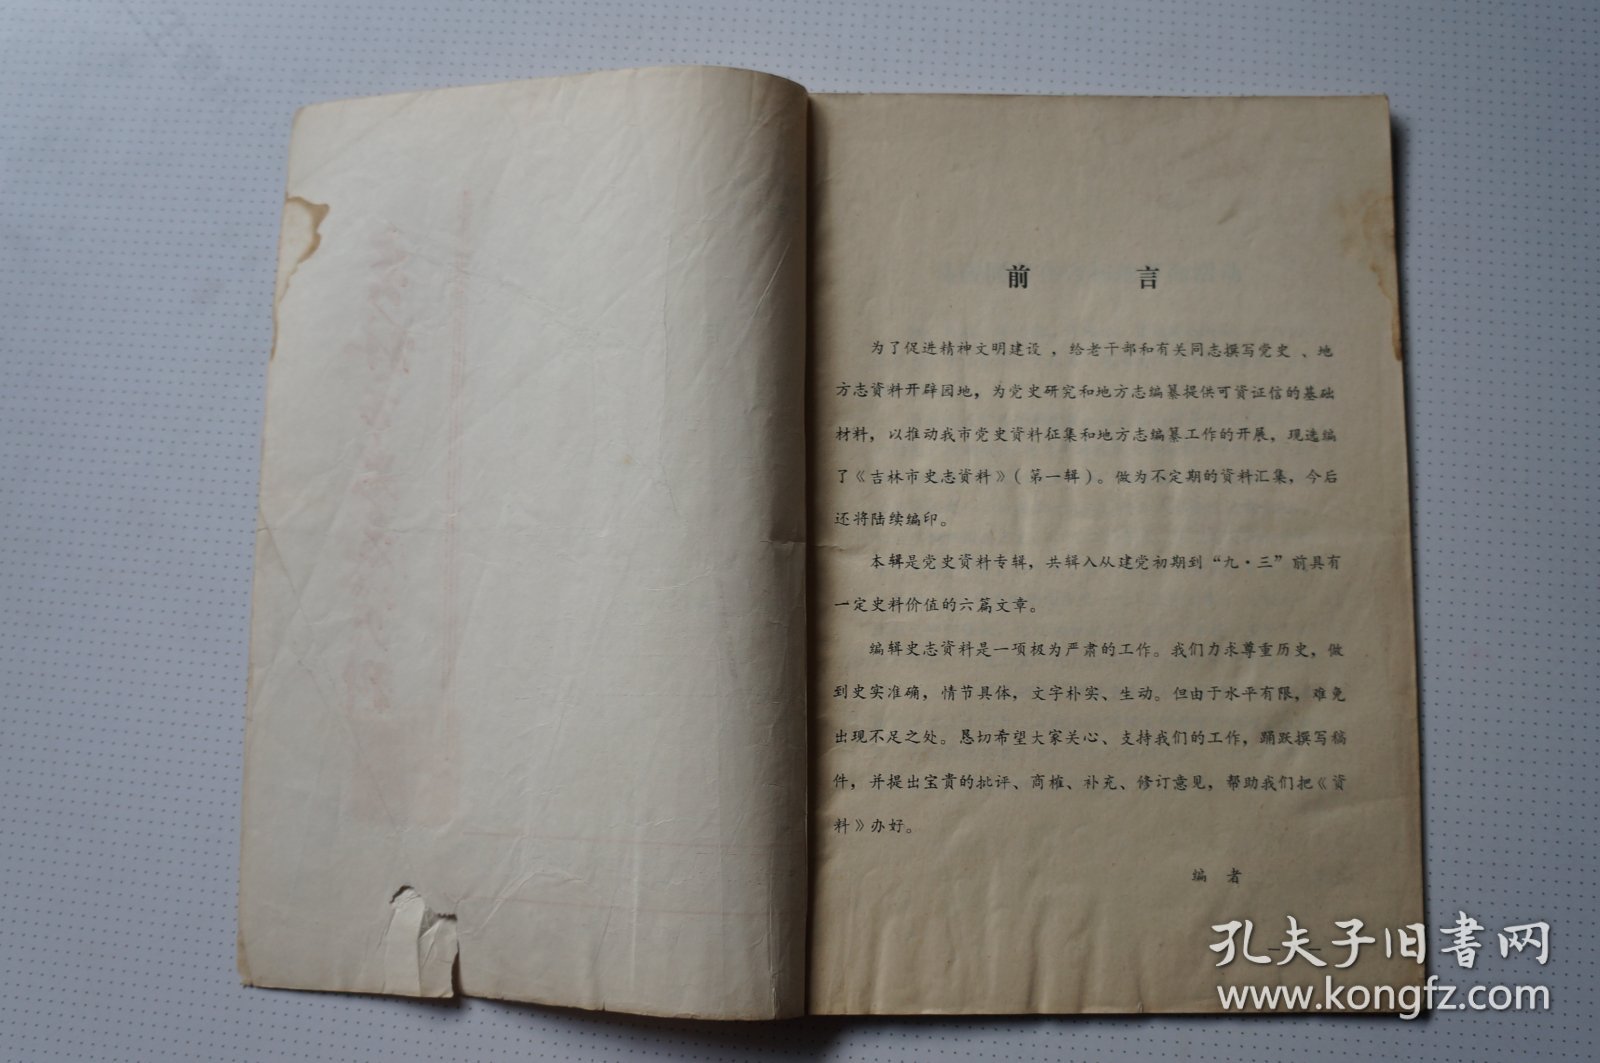 前言
为了促进精神文明建设，给老干部和有关同志撰写党史、地
方志资料开辟园地，为党史研究和地方志编纂提供可资证信的基础
材料，以推动我市党史资料征集和地方志编纂工作的开展，现选编
了《吉林市史志资料》（第一辑）。做为不定期的资料汇集，今后
还将陆续编印。
本辑是党史资料专辑，共辑入从建党初期到“九·三”前具有
一定史料价值的六篇文章。
编辑史志资料是一项极为严肃的工作。我们力求尊重历史，做
到史实准确，情节具体，文字朴实、生动。但由于水平有限，难免
出现不足之处。恳切希望大家关心、支持我们的工作，踊跃撰写稿
件，并提出宝贵的批评、商榷、补充、修订意见，帮助我们把《资
料》办好。
编者
孔夫子旧書网
www.kongfz.com